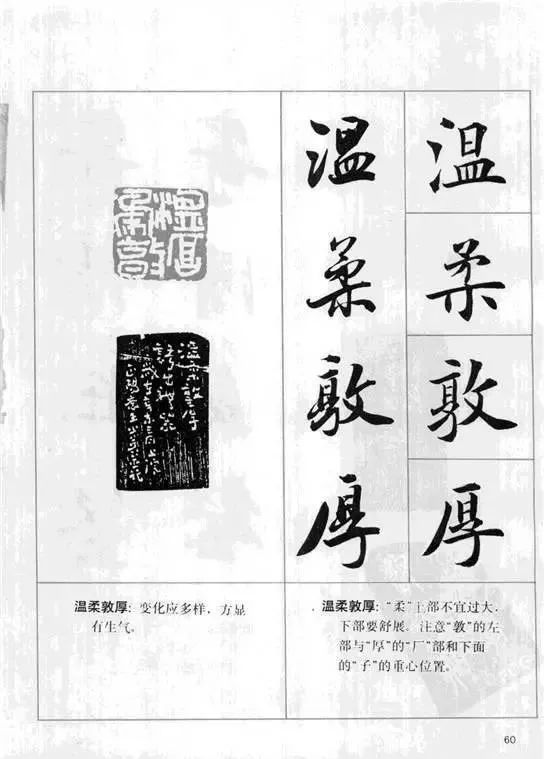 温柔敦厚
温柔敦厚
温柔敦厚
温柔敦厚：变化应多样，方显
有生气。
温柔敦厚：“柔”上部不宜过大，
下部要舒展。注意“敦”的左
部与“厚”的“厂”部和下面
的“子”的重心位置。
60